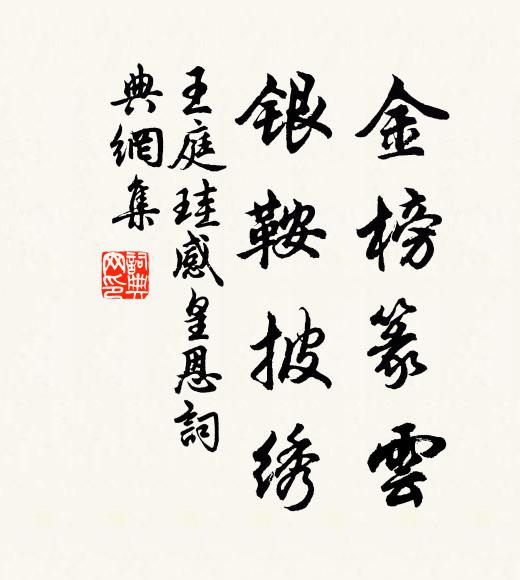 金榜篆雲
銀鞍披绣
王庭珪感皇恩詞
典網集
詞典网印